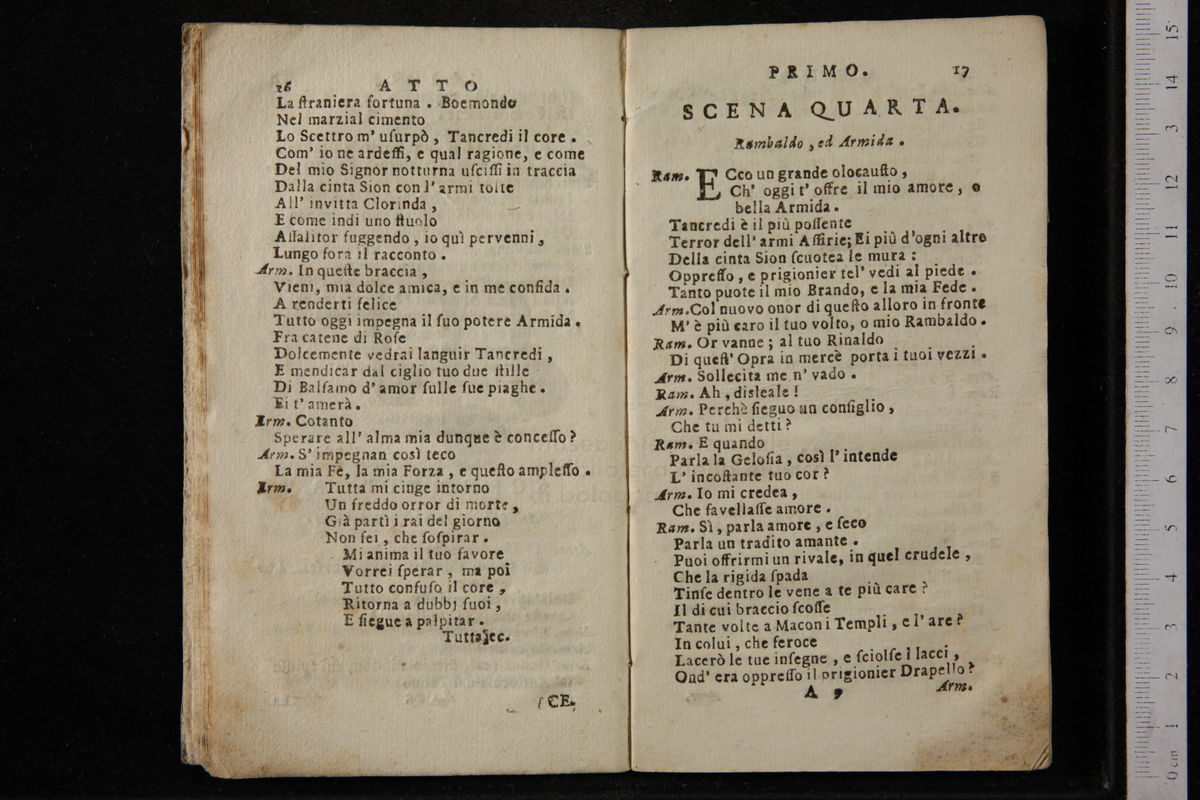 16 ATTO
La ſtraniera fortuna . Boemondo
Nel marzial cimento
Lo Scettro m' uſurpò , Tancredi il core .
Com' io ne ardeſſi, e qual ragione, e come
Del mio Signor notturna uſciſſi in traccia
Dalla cinta Sion con l' armi tolte
All' invitta Clorinda ,
E come indi uno ſtuolo
Aſſalitor fuggendo , io quì pervenni ,
Lungo fora il racconto .
Arm. In queſte braccia ,
Vieni, mia dolce amica, e in me confida .
A renderti felice
Tutto oggi impegna il ſuo potere Armida .
Fra catene di Roſe
Dolcemente vedrai languir Tancredi ,
E mendicar dal ciglio tuo due ſtille
Di Balſamo d' amor ſulle ſue piaghe .
Ei t' amerà .
Erm. Cotanto
Sperare all' alma mia dunque è conceſſo ?
Arm. S' impegnan così teco
La mia Fè, la mia Forza , e queſto ampleſſo .
Erm. Tutta mi cinge intorno
Un freddo orror di morte ,
Già partì i rai del giorno
Non ſei , che ſoſpirar .
Mi anima il tuo favore
Vorrei ſperar , ma poi
Tutto confuſo il core ,
Ritorna a dubbj ſuoi ,
E ſiegue a palpitar .
Tutta, ec.
SCE.
PRIMO. 17
SCENA QUARTA.
Rambaldo , ed Armida .
Ram. ECco un grande olocauſto ,
Ch' oggi t' offre il mio amore , o
bella Armida .
Tancredi è il più poſſente
Terror dell' armi Aſſirie; Ei più d'ogni altro
Della cinta Sion ſcuotea le mura :
Oppreſſo , e prigionier tel' vedi al piede .
Tanto puote il mio Brando, e la mia Fede .
Arm. Col nuovo onor di queſto alloro in fronte
M' è più caro il tuo volto, o mio Rambaldo .
Ram. Or vanne ; al tuo Rinaldo
Di queſt' Opra in mercè porta i tuoi vezzi .
Arm. Sollecita me n' vado .
Ram. Ah , disleale !
Arm. Perchè ſieguo un conſiglio ,
Che tu mi detti ?
Ram. E quando
Parla la Geloſia , così l' intende
L' incoſtante tuo cor ?
Arm. Io mi credea ,
Che favellaſſe amore .
Ram. Sì , parla amore , e ſeco
Parla un tradito amante .
Puoi offrirmi un rivale, in quel crudele ,
Che la rigida ſpada
Tinſe dentro le vene a te più care ?
Il di cui braccio ſcoſſe
Tante volte a Macon i Templi , e l' are ?
In colui , che feroce
Lacerò le tue inſegne , e ſciolſe i lacci ,
Ond' era oppreſſo il prigionier Drapello ?
A 9 Arm.